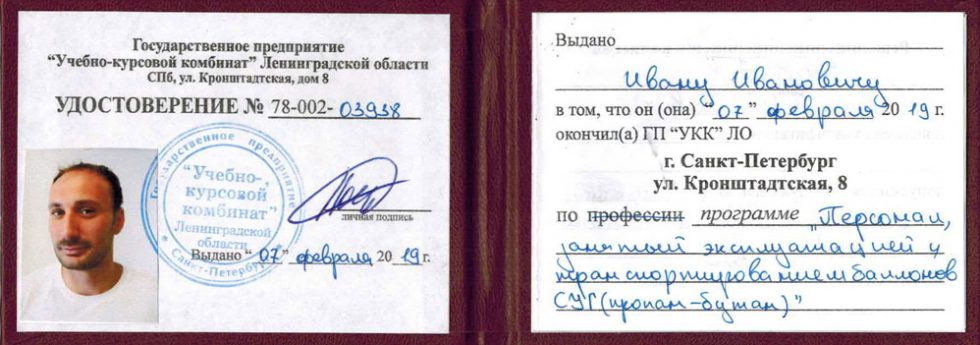 Государственное предприятие
“Учебно-курсовой комбинат” Ленинградской области
СПб, ул. Кронштадтская, дом 8
УДОСТОВЕРЕНИЕ № 78-002-03938
Государственное предприятие
“Учебно-
курсовой
комбинат”
Ленинградской
области
* Санкт-Петербург *
личная подпись
Выдано “07” февраля 2019 г.
Выдано
Ивану Ивановичу
в том, что он (она) “07” февраля 2019 г.
окончил(а) ГП “УКК” ЛО
г. Санкт-Петербург
ул. Кронштадтская, 8
по профессии программе "Персонал,
занятый эксплуатацией и
транспортированием баллонов
СУГ (пропан-бутан)"